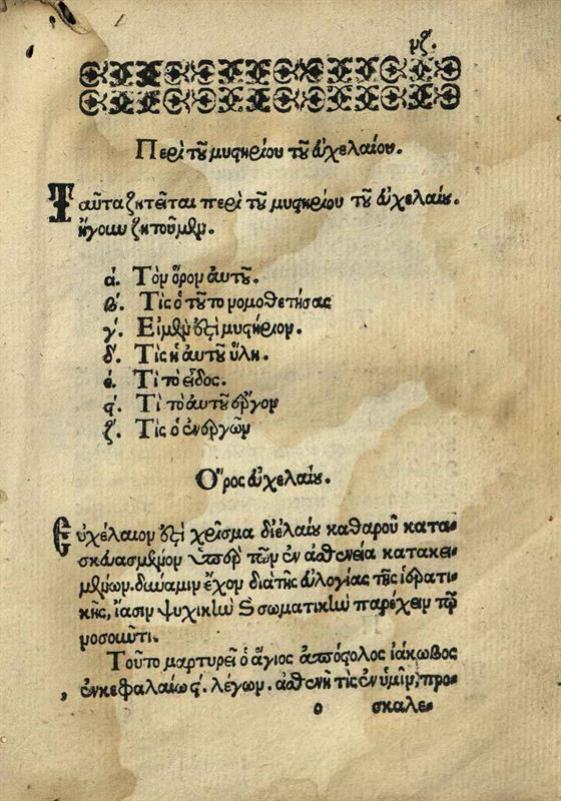 νζ΄.
Περὶ τοῦ μυστηρίου τοῦ εὐχελαίου.
Ταῦτα ζητεῖται περὶ τοῦ μυστηρίου τοῦ εὐχελαίου.
ἤγουν ζητοῦμεν.
ά. Τὸν ὅρον αὐτοῦ.
β΄. Τὶς ὁ τοῦτο νομοθετήσας
γ΄. Εἰ μὲν ἐστὶ μυστήριον.
δ΄. Τὶς ἡ αὐτοῦ ὕλη.
έ. Τὶ τὸ εἶδος.
ϛ΄. Τὶ τὸ αὐτοῦ ἔργον
ζ΄. Τὶς ὁ ἐνεργῶν
Ὅρος εὐχελαίου.
Εὐχέλαιον ἐστὶ χρῖσμα δι ἐλαίου καθαροῦ κατα-
σκευασμένον ὑπὲρ τῶν ἐν ἀσθενεία κατακει-
μένων. δύναμιν ἔχον διὰ τῆς εὐλογίας τῆς ἱερατι-
κῆς, ἴασιν ψυχικὴν καὶ σωματικὴν παρέχειν τῷ
νοσοῦντι.
Τοῦτο μαρτυρεῖ ὁ ἅγιος ἀπόστολος ἰάκωβος
ἐν κεφαλαίω ϛ΄. λέγων. ἀσθενῆ τὶς ἐν ὑμῖν, προ-
ο σκαλε-